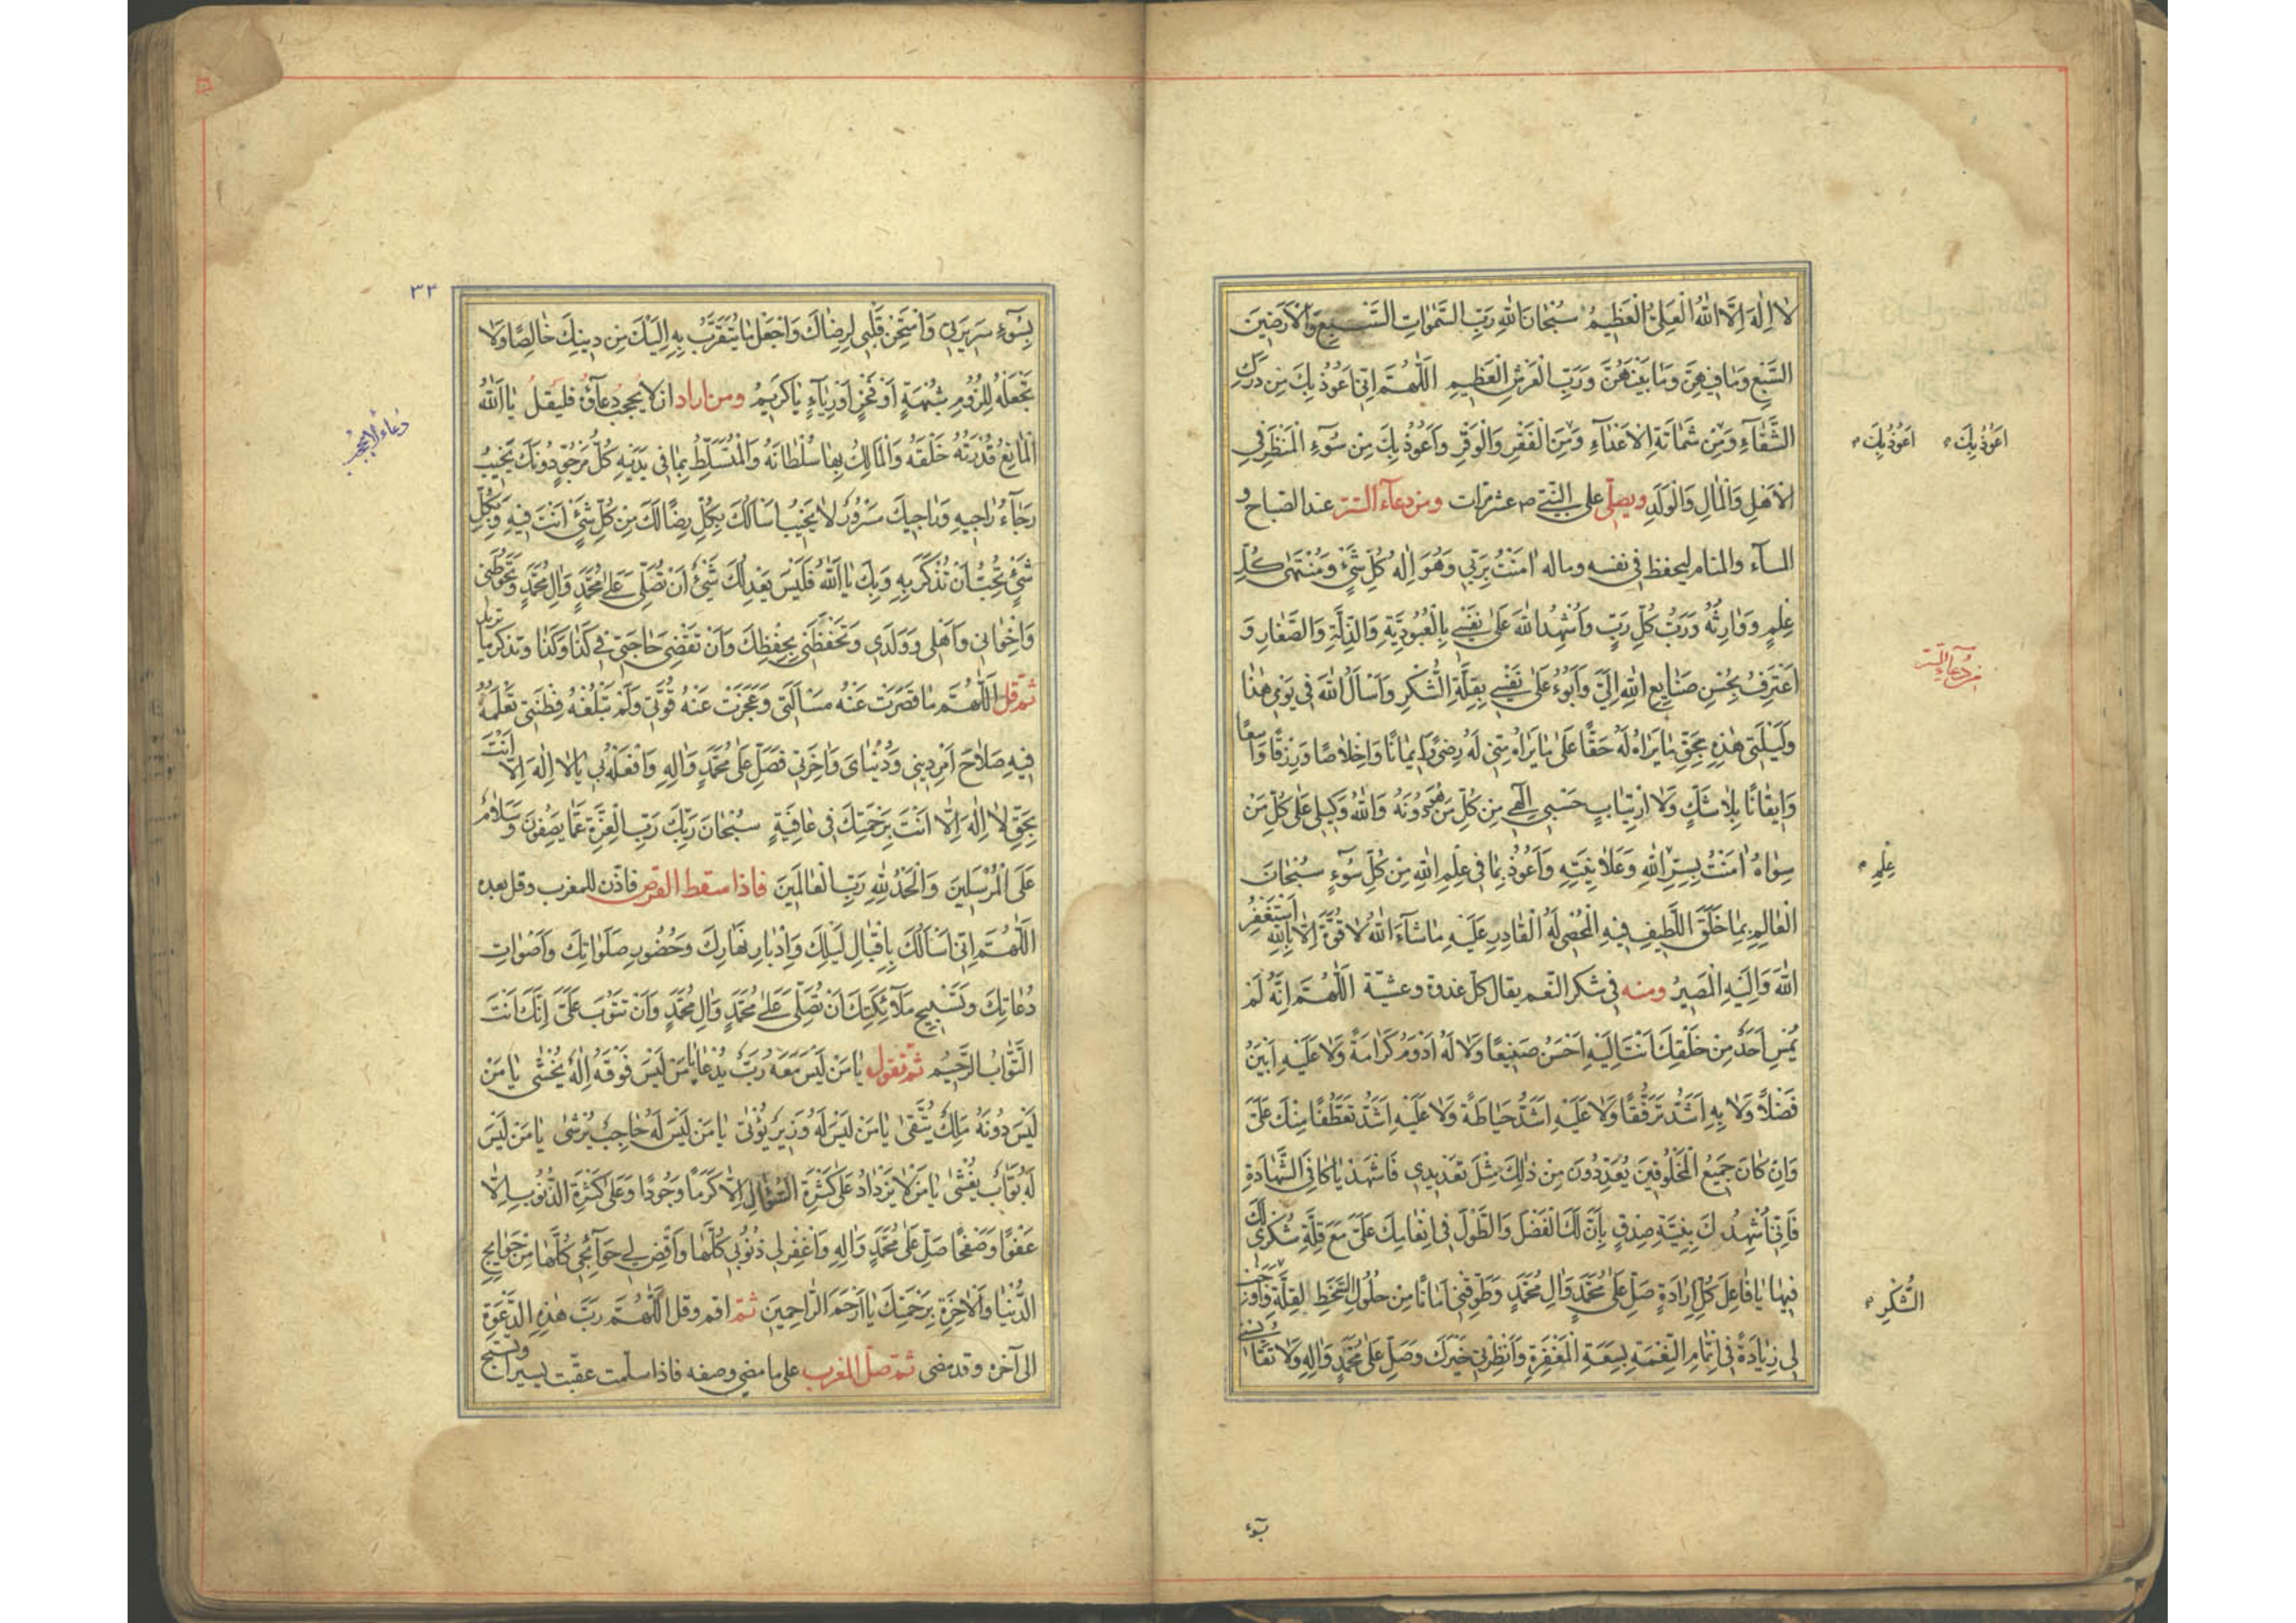 لا اِلٰهَ اِلَّا اللّٰهُ الْعَلِىُّ الْعَظِيمُ سُبْحَانَ اللّٰهِ رَبِّ السَّمٰوَاتِ السَّبْعِ وَالْاَرَضِينَ
السَّبْعِ وَمَا فِيهِنَّ وَمَا بَيْنَهُنَّ وَرَبِّ الْعَرْشِ الْعَظِيمِ اَللّٰهُمَّ اِنِّى اَعُوذُ بِكَ مِنْ دَرَكِ
الشَّقَآءِ وَمِنْ شَمَاتَةِ الْاَعْدَآءِ وَمِنَ الْفَقْرِ وَالْوَقْرِ وَاَعُوذُ بِكَ مِنْ سُوٓءِ الْمَنْظَرِ فِى
اَعُوذُ بِكَ اَعُوذُ بِكَ
الْاَهْلِ وَالْمَالِ وَالْوَلَدِ ويصلّى على النّبىّ ص عشر مرّات ومن دعآء السّرّ عند الصّباح و
المسآء والمنام ليحفظ فى نفسه وماله اٰمَنْتُ بِرَبِّى وَهُوَ اِلٰهُ كُلِّ شَىْءٍ وَمُنْتَهٰى كُلِّ
عِلْمٍ وَوَارِثُهُ وَرَبُّ كُلِّ رَبٍّ وَاُشْهِدُ اللّٰهَ عَلٰى نَفْسِى بِالْعُبُودِيَّةِ وَالذِّلَّةِ وَالصَّغَارِ وَ
من دعآء السّرّ
اَعْتَرِفُ بِحُسْنِ صَنَايِعِ اللّٰهِ اِلَىَّ وَاَبُوءُ عَلٰى نَفْسِى بِقِلَّةِ الشُّكْرِ وَاَسْاَلُ اللّٰهَ فِى يَوْمِى هٰذَا
وَلَيْلَتِى هٰذِهِ بِحَقِّ مَا يَرَاهُ لَهُ حَقًّا عَلٰى مَا يَرَاهُ مِنِّى لَهُ رِضًى اِيمَانًا وَاِخْلَاصًا وَرِزْقًا وَاسِعًا
وَاِيقَانًا بِلَا شَكٍّ وَلَا ارْتِيَابٍ حَسْبِى اِلٰهِى مِنْ كُلِّ مَنْ هُوَ دُونَهُ وَاللّٰهُ وَكِيلِى عَلٰى كُلِّ مَنْ
سِوَاهُ اٰمَنْتُ بِسِرِّ اللّٰهِ وَعَلَانِيَتِهِ وَاَعُوذُ بِمَا فِى عِلْمِ اللّٰهِ مِنْ كُلِّ سُوٓءٍ سُبْحَانَ
عِلْمِ
الْعَالِمِ بِمَا خَلَقَ اللَّطِيفِ فِيهِ الْمُحْصِى لَهُ الْقَادِرِ عَلَيْهِ مَا شَآءَ اللّٰهُ لَا قُوَّةَ اِلَّا بِاللّٰهِ اَسْتَغْفِرُ
اللّٰهَ وَاِلَيْهِ الْمَصِيرُ ومنه فى شكر النّعم يقال كلّ غدوة وعشيّة اَللّٰهُمَّ اِنَّهُ لَمْ
يُمْسِ اَحَدٌ مِنْ خَلْقِكَ اَنْتَ اِلَيْهِ اَحْسَنُ صَنِيعًا وَلَا لَهُ اَدْوَمُ كَرَامَةً وَلَا عَلَيْهِ اَبْيَنُ
فَضْلًا وَلَا بِهِ اَشَدُّ تَرَفُّقًا وَلَا عَلَيْهِ اَشَدُّ حِيَاطَةً وَلَا عَلَيْهِ اَشَدُّ تَعَطُّفًا مِنْكَ عَلَىَّ
وَاِنْ كَانَ جَمِيعُ الْمَخْلُوقِينَ يُعَدِّدُونَ مِنْ ذٰلِكَ مِثْلَ تَعْدِيدِى فَاشْهَدْ يَا كَافِىَ الشَّهَادَةِ
فَاِنِّى اُشْهِدُكَ بِنِيَّةِ صِدْقٍ بِاَنَّ لَكَ الْفَضْلَ وَالطَّوْلَ فِى اِنْعَامِكَ عَلَىَّ مَعَ قِلَّةِ شُكْرِى لَكَ
فِيهَا يَا فَاعِلَ كُلِّ اِرَادَةٍ صَلِّ عَلٰى مُحَمَّدٍ وَاٰلِ مُحَمَّدٍ وَطَوِّقْنِى اَمَانًا مِنْ حُلُولِ السَّخَطِ لِقِلَّةِ
الشُّكْرِ
لِى زِيَادَةً فِى اِتْمَامِ النِّعْمَةِ بِسَعَةِ الْمَغْفِرَةِ وَاَنْظِرْنِى خَيْرَكَ وَصَلِّ عَلٰى مُحَمَّدٍ وَاٰلِهِ وَلَا تُقَايِسْنِى
بسوٓء
٣٣
بِسُوٓءِ سَرِيرَتِى وَامْتَحِنْ قَلْبِى لِرِضَاكَ وَاجْعَلْ مَا يُتَقَرَّبُ بِهِ اِلَيْكَ مِنْ دِينِكَ خَالِصًا وَلَا
تَجْعَلْهُ لِلُزُومِ شُبْهَةٍ اَوْ فَخْرٍ اَوْ رِيَآءٍ يَا كَرِيمُ ومن اراد ان لا يحجب دعآؤه فليقل يَا اَللّٰهُ
دعاء لا يحجب
الْمَانِعُ قُدْرَتُهُ خَلْقَهُ وَالْمَالِكُ بِهَا سُلْطَانَهُ وَالْمُتَسَلِّطُ بِمَا فِى يَدَيْهِ كُلُّ مَرْجُوٍّ دُونَكَ يُخَيِّبُ
رَجَآءَ رَاجِيهِ وَرَاجِيكَ مَسْرُورٌ لَا يَخِيبُ اَسْاَلُكَ بِكُلِّ رِضًا لَكَ مِنْ كُلِّ شَىْءٍ اَنْتَ فِيهِ وَبِكُلِّ
شَىْءٍ تُحِبُّ اَنْ تُذْكَرَ بِهِ وَبِكَ يَا اَللّٰهُ فَلَيْسَ يَعْدِلُكَ شَىْءٌ اَنْ تُصَلِّىَ عَلٰى مُحَمَّدٍ وَاٰلِ مُحَمَّدٍ وَتَحُوطَنِى
وَاِخْوَانِى وَاَهْلِى وَوَلَدِى وَتَحْفَظَنِى بِحِفْظِكَ وَاَنْ تَقْضِىَ حَاجَتِى فِى كَذَا وَكَذَا وتذكر ما تريد
ثمّ قل اَللّٰهُمَّ مَا قَصُرَتْ عَنْهُ مَسْاَلَتِى وَعَجَزَتْ عَنْهُ قُوَّتِى وَلَمْ تَبْلُغْهُ فِطْنَتِى تَعْلَمُ
فِيهِ صَلَاحَ اَمْرِ دِينِى وَدُنْيَاىَ وَاٰخِرَتِى فَصَلِّ عَلٰى مُحَمَّدٍ وَاٰلِهِ وَافْعَلْهُ بِى يَا لَا اِلٰهَ اِلَّا اَنْتَ
بِحَقِّ لَا اِلٰهَ اِلَّا اَنْتَ بِرَحْمَتِكَ فِى عَافِيَةٍ سُبْحَانَ رَبِّكَ رَبِّ الْعِزَّةِ عَمَّا يَصِفُونَ وَسَلَامٌ
عَلَى الْمُرْسَلِينَ وَالْحَمْدُ لِلّٰهِ رَبِّ الْعَالَمِينَ فاذا سقط القرص فاذّن للمغرب وقل بعده
اَللّٰهُمَّ اِنِّى اَسْاَلُكَ بِاِقْبَالِ لَيْلِكَ وَاِدْبَارِ نَهَارِكَ وَحُضُورِ صَلَوَاتِكَ وَاَصْوَاتِ
دُعَاتِكَ وَتَسْبِيحِ مَلَآئِكَتِكَ اَنْ تُصَلِّىَ عَلٰى مُحَمَّدٍ وَاٰلِ مُحَمَّدٍ وَاَنْ تَتُوبَ عَلَىَّ اِنَّكَ اَنْتَ
التَّوَّابُ الرَّحِيمُ ثمّ تقول يَا مَنْ لَيْسَ مَعَهُ رَبٌّ يُدْعَا يَا مَنْ لَيْسَ فَوْقَهُ اِلٰهٌ يُخْشٰى يَا مَنْ
لَيْسَ دُونَهُ مَلِكٌ يُتَّقٰى يَا مَنْ لَيْسَ لَهُ وَزِيرٌ يُؤْتٰى يَا مَنْ لَيْسَ لَهُ حَاجِبٌ يُرْشٰى يَا مَنْ لَيْسَ
لَهُ بَوَّابٌ يُغْشٰى يَا مَنْ لَا يَزْدَادُ عَلٰى كَثْرَةِ السُّؤَالِ اِلَّا كَرَمًا وَجُودًا وَعَلٰى كَثْرَةِ الذُّنُوبِ اِلَّا
عَفْوًا وَصَفْحًا صَلِّ عَلٰى مُحَمَّدٍ وَاٰلِهِ وَاغْفِرْ لِى ذُنُوبِى كُلَّهَا وَاقْضِ لِى حَوَآئِجِى كُلَّهَا مِنْ حَوَايِجِ
الدُّنْيَا وَالْاٰخِرَةِ بِرَحْمَتِكَ يَا اَرْحَمَ الرَّاحِمِينَ ثمّ اقم وقل اَللّٰهُمَّ رَبَّ هٰذِهِ الدَّعْوَةِ
الى آخره وقد مضى ثمّ صلّ المغرب على ما مضى وصفه فاذا سلّمت عقّبت يسيرا وتسبّح